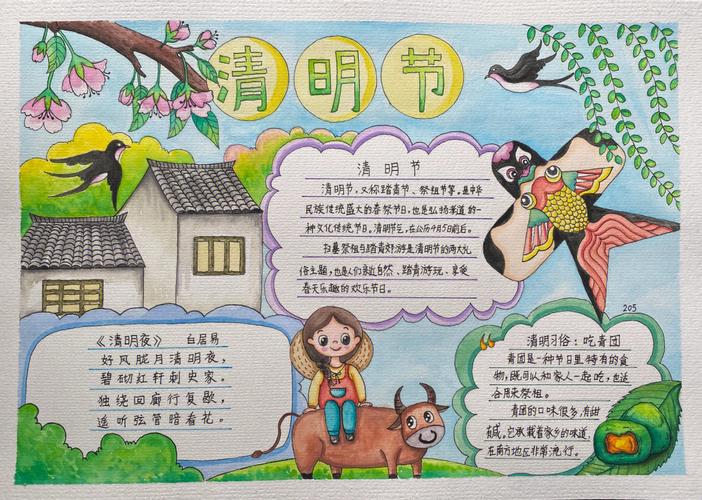 清明节
清明节
清明节，又称踏青节、祭祖节等。是中华
民族传统盛大的春祭节日，也是弘扬孝道的一
种文化传统节日。清明节气，在公历4月5日前后。
扫墓祭祖与踏青郊游是清明节的两大礼
俗主题，也是人们亲近自然、踏青游玩、享受
春天乐趣的欢乐节日。
205
《清明夜》 白居易
好风胧月清明夜，
碧砌红轩刺史家。
独绕回廊行复歇，
遥听弦管暗看花。
清明习俗：吃青团
青团是一种节日里特有的食
物，既可以和家人一起吃，也适
合用来祭祖。
青团的口味很多，有甜
有咸。它承载着家乡的味道，
在南方地区非常流行。